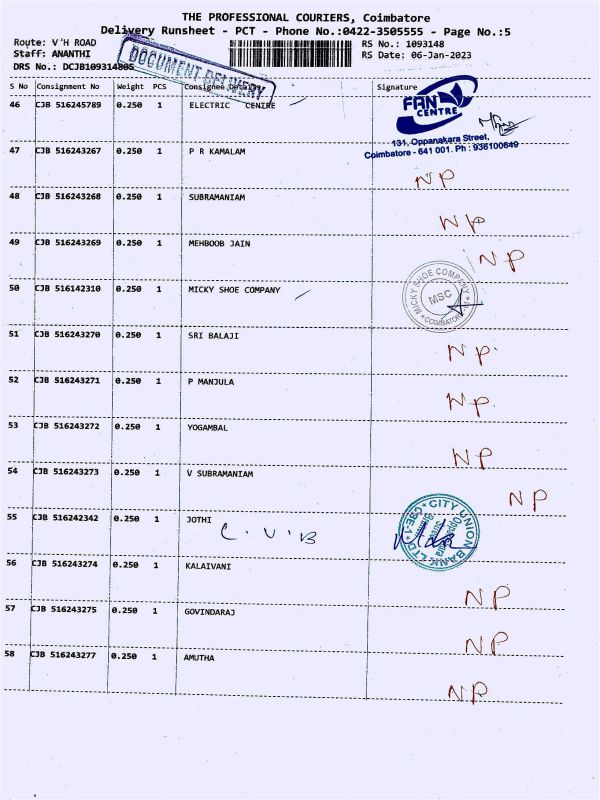 THE PROFESSIONAL COURIERS, Coimbatore
Delivery Runsheet - PCT - Phone No.:0422-3505555 - Page No.:5
Route: V'H ROAD RS No.: 1093148
Staff: ANANTHI RS Date: 06-Jan-2023
DRS No.: DCJB109314805
DOCUMENT DELIVERY
S No Consignment No Weight PCS Consignee Details Signature
46 CJB 516245789 0.250 1 ELECTRIC CENTRE
FAN CENTRE
131, Oppanakara Street,
Coimbatore - 641 001. Ph : 936100649
47 CJB 516243267 0.250 1 P R KAMALAM NP
48 CJB 516243268 0.250 1 SUBRAMANIAM NP
49 CJB 516243269 0.250 1 MEHBOOB JAIN NP
50 CJB 516142310 0.250 1 MICKY SHOE COMPANY
MICKY SHOE COMPANY
MSC
COIMBATORE
51 CJB 516243270 0.250 1 SRI BALAJI NP
52 CJB 516243271 0.250 1 P MANJULA NP
53 CJB 516243272 0.250 1 YOGAMBAL NP
54 CJB 516243273 0.250 1 V SUBRAMANIAM NP
55 CJB 516242342 0.250 1 JOTHI C.U.B
CITY UNION BANK LTD CBE-1
56 CJB 516243274 0.250 1 KALAIVANI NP
57 CJB 516243275 0.250 1 GOVINDARAJ NP
58 CJB 516243277 0.250 1 AMUTHA NP